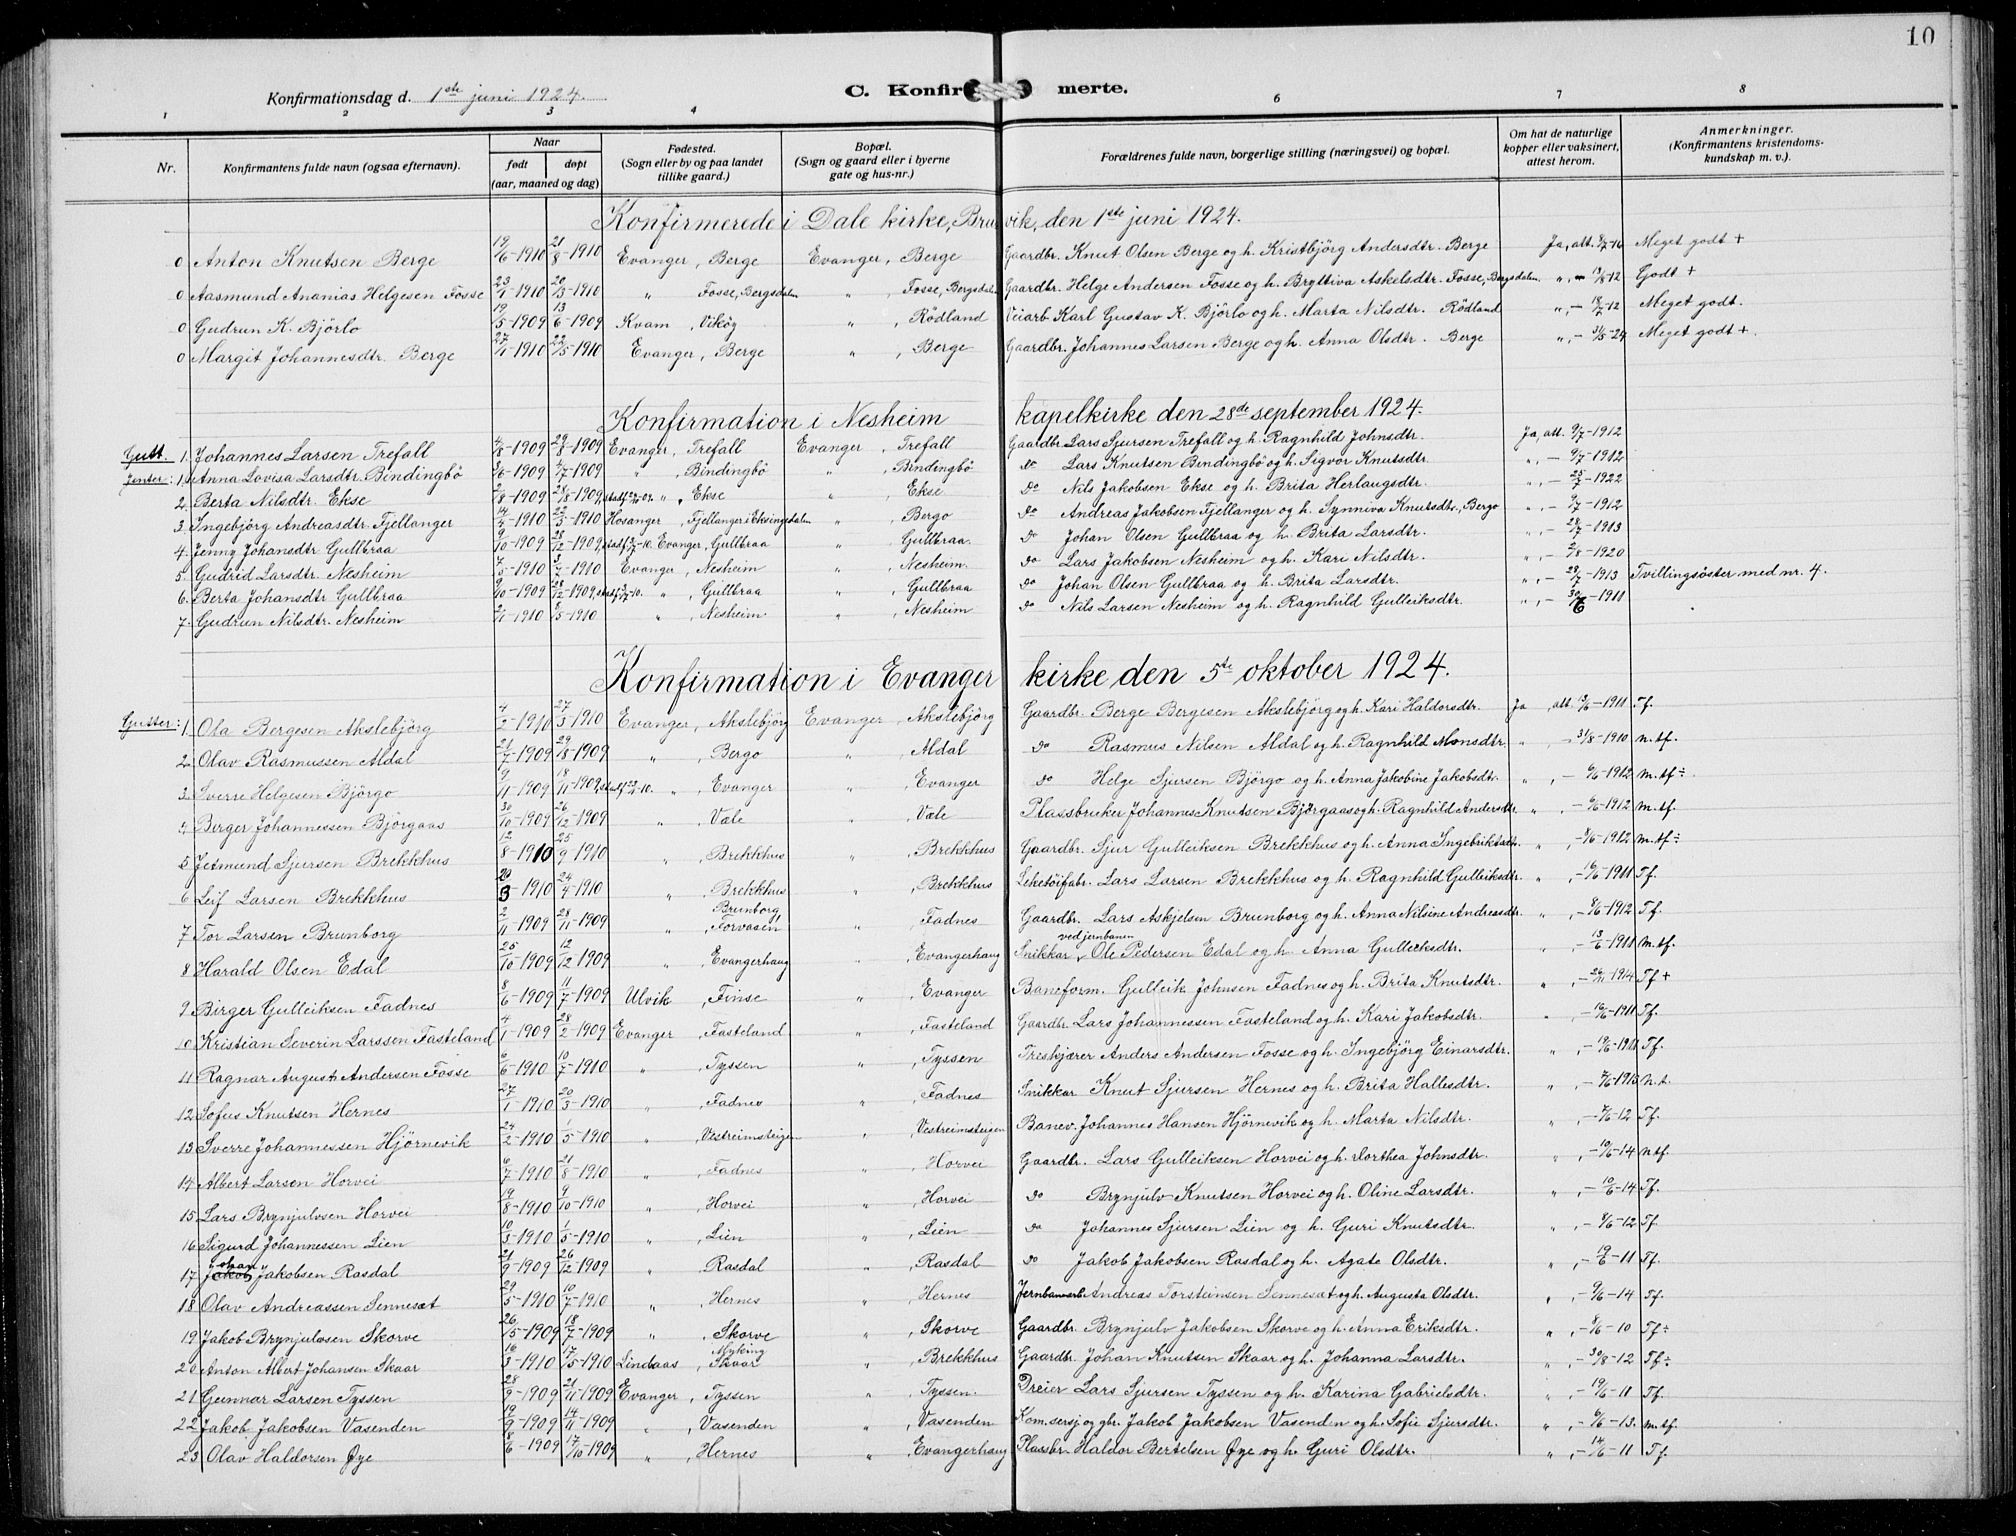 10
Konfirmationsdag d. 1ste juni 1924.
C. Konfirmerte.
1 2 3 4 6 7 8
Nr. Konfirmantens fulde navn (ogsaa efternavn). Naar født døpt (aar, maaned og dag) Fødested. (Sogn eller by og paa landet tillike gaard.) Bopæl. (Sogn og gaard eller i byerne gate og hus-nr.) Forældrenes fulde navn, borgerlige stilling (næringsvei) og bopæl. Om hat de naturlige kopper eller vaksinert, attest herom. Anmerkninger. (Konfirmantens kristendomskundskap m. v.).
Konfirmerede i Dale kirke, Bruvik, den 1ste juni 1924.
0 Anton Knutsen Berge 19/6-1910 21/8-1910 Evanger, Berge Evanger, Berge Gaardbr. Knut Olsen Berge og h. Kristbjörg Andersdtr. Berge Ja, att. 8/7-16 Meget godt +
0 Aasmund Ananias Helgesen Fosse 23/1-1910 20/3-1910 " Fosse, Bergsdalen " , Fosse, Bergsdalen Gaardbr. Helge Andersen Fosse og h. Bryttiva Askelsdtr. Fosse, Bergsdalen " , - 13/8-12 Godt +
0 Gudrun K. Björlo 19/5-1909 13/6-1909 Kvam, Viköy " , Rödland Veiarb Karl Gustav K. Björlo og h. Marta Nilsdtr. Rödland " , - 18/7-12 Meget godt.
0 Margit Johannesdtr. Berge 27/1-1910 22/5-1910 Evanger, Berge " , Berge Gaardbr. Johannes Larsen Berge og h. Anna Olsdtr. Berge " , - 31/5-24 Meget godt +.
Konfirmation i Nesheim kapelkirke den 28de september 1924.
Gutt. 1. Johannes Larsen Trefall 4/8-1909 29/8-1909 Evanger, Trefall Evanger, Trefall Gaardbr. Lars Sjursen Trefall og h. Ragnhild Johnsdtr. Ja, att. 9/7-1912
Jenter: 1. Anna Lovisa Larsdtr. Bindingbö 3/6-1909 4/7-1909 " , Bindingbö " , Bindingbö do Lars Knutsen Bindingbö og h. Sigvor Knutsdtr. " , - 9/7-1912
2. Berta Nilsdtr. Ekse 2/8-1909 28/8-1909, " , Ekse " , Ekse do Nils Jakobsen Ekse og h. Brita Herlaugsdtr. " , - 25/7-1922
3. Ingebjörg Andreasdtr. Fjellanger 14/4-1910 22/5-1910 Hosanger, Fjellanger i Eksingedalen " Bergo do Andreas Jakobsen Fjellanger og h. Synniva Knutsdtr., Bergo " , - 9/7-1912
4. Jenny Johansdtr. Gullbraa 9/10-1909 28/12-1909, Evanger, Gullbraa " , Gullbraa. do Johan Olsen Gullbraa og h. Brita Larsdtr. " , - 28/7-1913
5. Gudrid Larsdtr. Nesheim 7/5-1910 3/7-1910 Evanger, Nesheim " , Nesheim. do Lars Jakobsen Nesheim og h. Kari Nilsdtr. " , - 2/8-1920
6. Berta Johansdtr Gullbraa 9/10-1909 28/12-1909, " , Gullbraa " , Gullbraa do Johan Olsen Gullbraa og h. Brita Larsdtr. " , - 28/7-1913 Tvillingsöster med nr. 4.
7. Gudrun Nilsdtr. Nesheim 2/1-1910 8/5-1910 " , Nesheim " , Nesheim do Nils Larsen Nesheim og h. Ragnhild Gulleiksdtr. " , - 30/6-1911
Konfirmation i Evanger kirke den 5te oktober 1924.
Gutter: 1. Ola Bergesen Akslebjörg 4/2-1910 27/3-1910 Evanger, Akslebjörg Evanger, Akslebjörg Gaardbr. Berge Bergesen Akslebjörg og h. Kari Haldorsdtr. Ja, att. 13/6-1911 Tf.
2. Olav Rasmussen Aldal 21/7-1909 29/8-1909 " , Bergo " , Aldal do Rasmus Nilsen Aldal og h. Ragnhild Monsdtr. " , - 31/8-1910 n. tf.
3. Sverre Helgesen Björgo 9/11-1909 18/11-1909, " , Evanger " , Evanger do Helge Sjursen Björgo og h. Anna Jakobine Jakobsdtr. " , - 6/6-1912 m. tf÷
4. Birger Johannessen Björgaas 30/10-1909 26/12-1909 " , Væle " , Væle Plassbruker Johannes Knutsen Björgaas og h. Ragnhild Andersdtr " , - 6/6-1912 m. tf.
5 Jetmund Sjursen Brekkhus 12/8-1910 25/9-1910 " , Brekkhus " , Brekkhus Gaardbr. Sjur Gulleiksen Brekkhus og h. Anna Ingebriktsdtr. " , - 8/6-1912 m. tf÷
6 Leif Larsen Brekkhus 20/3-1910 24/4-1910 " , Brekkhus " , Brekkhus Leketöifabr. Lars Larsen Brekkhus og h. Ragnhild Gulleiksdtr. " , - 16/6-1911 Tf.
7 Tor Larsen Brunborg 2/11-1909 28/11-1909 " , Brunborg, Forvasen " , Fadnes Gaardbr. Lars Askjelsen Brunborg og h. Anna Nilsine Andreasdtr. " , - 8/6-1912 Tf.
8 Harald Olsen Edal 25/10-1909 12/12-1909 " , Evangerhaug " , Evangerhaug Snikkar ved jernbanen, Ole Pedersen Edal og h. Anna Gulleiksdtr. " , - 13/6-1911 m. tf.
9 Birger Gulleiksen Fadnes 8/6-1909 11/7-1909 Ulvik, Finse " , Evanger Baneform. Gulleik Johnsen Fadnes og h. Brita Knutsdtr. " , - 26/11-1914 Tf +
10 Kristian Severin Larssen Fasteland 4/1-1909 28/2-1909 Evanger, Fasteland " , Fasteland Gaardbr Lars Johannessen Fasteland og h. Kari Jakobsdtr. " , - 16/6-1911 Tf.
11 Ragnar August Andersen Fosse 6/6-1910 10/7-1910 " , Tyssen " , Tyssen Treskjærer Anders Andersen Fosse og h. Ingebjörg Einarsdtr. " , - 19/6-1911 Tf.
12 Sofus Knutsen Hernes 27/1-1910 20/3-1910 " , Fadnes " , Fadnes Snikkar Knut Sjursen Hernes og h. Brita Hallesdtr. " , - 7/6-1913 n. t.
13 Sverre Johannessen Hjörnevik 24/2-1910 1/5-1910 " , Vestreimsteigen " , Vestreimsteigen Banev. Johannes Hansen Hjörnevik og h. Marta Nilsdtr. " , - 7/6-12 Tf.
14 Albert Larsen Horvei 6/7-1910 21/8-1910 " , Fadnes " , Horvei Gaardbr. Lars Gulleiksen Horvei og h. Dorthea Johnsdtr. " , - 10/6-14 n tf.
15 Lars Brynjulvsen Horvei 19/8-1910 9/10-1910 " , Horvei " , Horvei do Brynjulv Knutsen Horvei og h. Oline Larsdtr. " , - 10/6-14 Tf.
16 Sigurd Johannessen Lien 10/3-1910 1/5-1910 " , Lien " , Lien do Johannes Sjursen Lien og h. Guri Knutsdtr. " , - 8/6-12 Tf.
17 Johan Jakobsen Rasdal 21/9-1909 26/12-1909 " , Rasdal " , Rasdal do Jakob Jakobsen Rasdal og h. Agate Olsdtr. " , - 19/6-11 Tf.
18 Olav Andreassen Sennesæt 29/5-1910 10/7-1910 " , Hernes " , Hernes Jernbanearb. Andreas Torsteinsen Sennesæt og h. Augusta Olsdtr. " , - 9/6-14 Tf.
19 Jakob Brynjulvsen Skorve 26/5-1909 18/7-1909 " , Skorve " , Skorve Gaardbr. Brynjulv Jakobsen Skorve og h. Anna Eriksdtr. " , - 8/6-10 Tf÷
20 Anton Albert Johansen Skaar 16/3-1910 17/5-1910 Lindaas, Myking Skaar " , Brekkhus Gaardbr. Johan Knutsen Skaar og h. Johanna Larsdtr. " , - 30/8-12 Tf÷
21 Gunnar Larsen Tyssen 28/9-1909 21/11-1909 Evanger, Tyssen " , Tyssen. Dreier Lars Sjursen Tyssen og h. Karina Gabrielsdtr. " , - 19/6-11 Tf.
22 Jakob Jakobsen Vasenden 19/9-1909 14/11-1909 " , Vasenden " , Vasenden Kom.sersj og gbr. Jakob Jakobsen Vasenden og h. Sofie Sjursdtr. " , - 6/6-13. m. tf.
23 Olav Haldorsen Øye 18/6-1909 17/10-1909 " , Hernes " , Evangerhaug Plassbr. Haldor Bertelsen Øye og h. Guri Olsdtr. " , - 14/6-11 Tf.